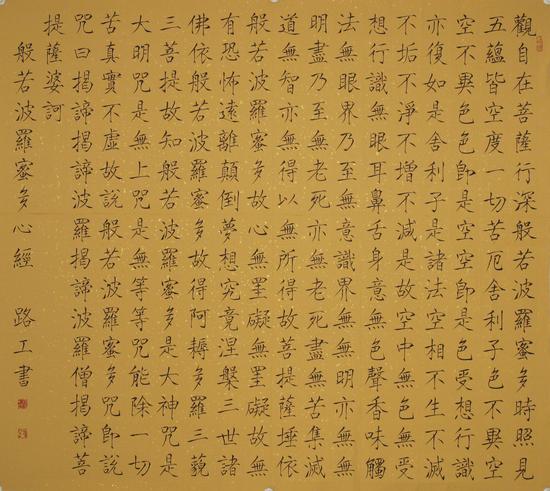 觀自在菩薩行深般若波羅蜜多時照見
五蘊皆空度一切苦厄舍利子色不異空
空不異色色即是空空即是色受想行識
亦復如是舍利子是諸法空相不生不滅
不垢不淨不增不減是故空中無色無受
想行識無眼耳鼻舌身意無色聲香味觸
法無眼界乃至無意識界無無明亦無無
明盡乃至無老死亦無老死盡無苦集滅
道無智亦無得以無所得故菩提薩埵依
般若波羅蜜多故心無罣礙無罣礙故無
有恐怖遠離顛倒夢想究竟涅槃三世諸
佛依般若波羅蜜多故得阿耨多羅三藐
三菩提故知般若波羅蜜多是大神咒是
大明咒是無上咒是無等等咒能除一切
苦真實不虛故說般若波羅蜜多咒即說
咒曰揭諦揭諦波羅揭諦波羅僧揭諦菩
提薩婆訶
般若波羅蜜多心經 路工書